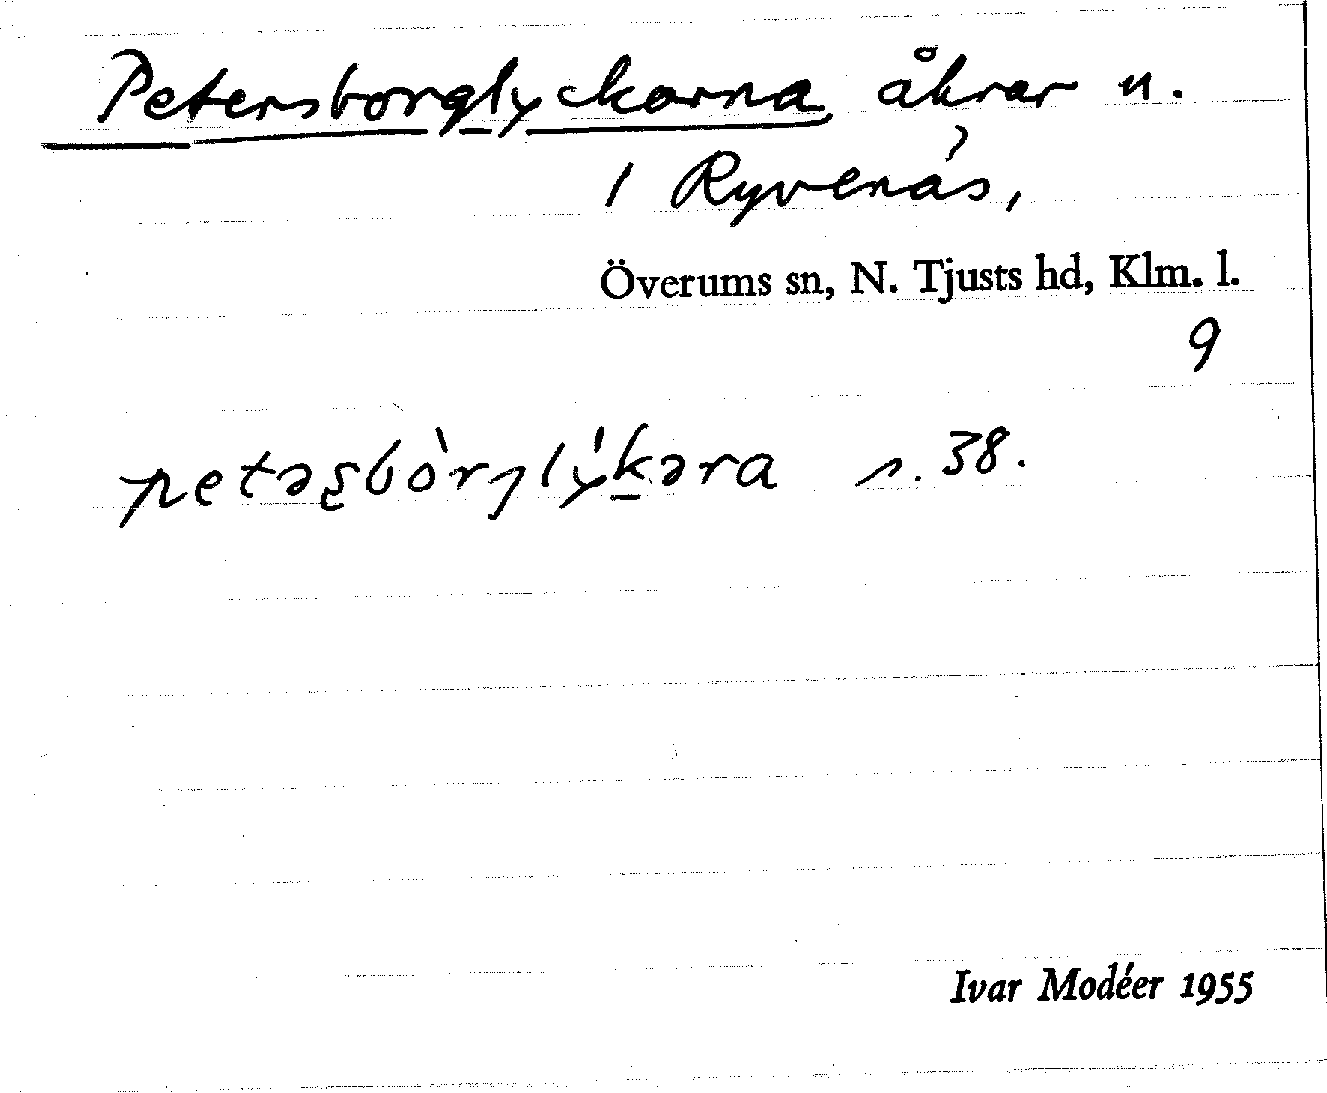 Petersborglyckorna åkrar n.
/ Ryvenäs,
Överums sn, N. Tjusts hd, Klm. l.
9
petəʂbòrjlýkəra s. 38.
Ivar Modéer 1955